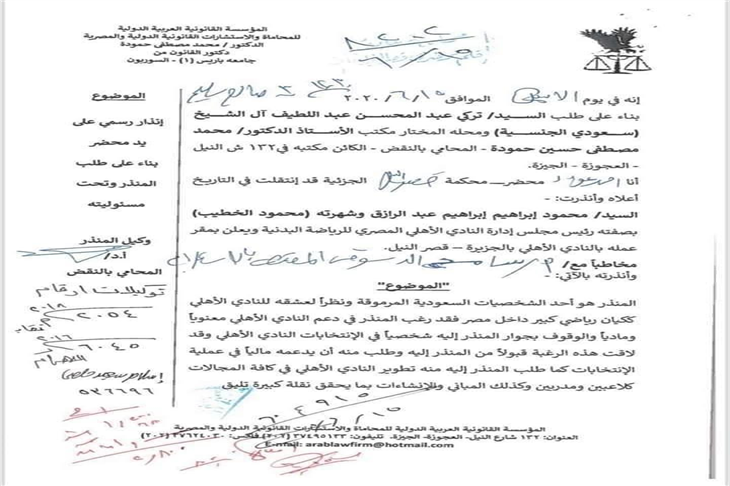 المؤسسة القانونية العربية الدولية
للمحاماة والاستشارات القانونية الدولية والمصرية
الدكتور / محمد مصطفى حمودة
دكتور القانون من
جامعه باريس (١) - السوربون
الموضوع
إنذار رسمي على
يد محضر
بناء على طلب
المنذر وتحت
مسئوليته
وكيل المنذر
أ.د/
المحامي بالنقض
توكيلات أرقام
٢٠١٨
٢٠٥٤
٢٠١٦
٦٠٤٥
٥٣٦٦٩٦
إنه في يوم الموافق ١٥/٦/٢٠٢٠
بناء على طلب السيد/ تركي عبد المحسن عبد اللطيف آل الشيخ
(سعودي الجنسية) ومحله المختار مكتب الأستاذ الدكتور/ محمد
مصطفى حسين حمودة - المحامي بالنقض - الكائن مكتبه في ١٣٢ ش النيل
- العجوزة - الجيزة.
أنا محضر محكمة الجزئية قد إنتقلت في التاريخ
أعلاه وأنذرت: -
السيد/ محمود إبراهيم إبراهيم عبد الرازق وشهرته (محمود الخطيب)
بصفته رئيس مجلس إدارة النادي الأهلي المصري للرياضة البدنية ويعلن بمقر
عمله بالنادي الأهلي بالجزيرة – قصر النيل.
مخاطباً مع/
وأنذرته بالآتي: -
"الموضوع"
المنذر هو أحد الشخصيات السعودية المرموقة ونظراً لعشقه للنادي الأهلي
ككيان رياضي كبير داخل مصر فقد رغب المنذر في دعم النادي الأهلي معنوياً
ومادياً والوقوف بجوار المنذر إليه شخصياً في الإنتخابات النادي الأهلي وقد
لاقت هذه الرغبة قبولاً من المنذر إليه وطلب منه أن يدعمه مالياً في عملية
الإنتخابات كما طلب المنذر إليه منه تطوير النادي الأهلي في كافة المجالات
كلاعبين ومدربين وكذلك المباني والإنشاءات بما يحقق نقلة كبيرة تليق
المؤسسة القانونية العربية الدولية للمحاماة والاستشارات القانونية الدولية والمصرية
العنوان: ١٣٢ شارع النيل- العجوزة- الجيزة. تليفون: ٣٧٤٩٥١٣٣ (٢٠٢) فاكس: ٣٧٦٢٤٠٣٠ (٢٠٢)
E-mail: arablawfirm@hotmail.com